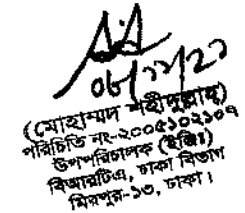 ০৮/১২/২১
(মোহাম্মদ শহীদুল্লাহ)
পরিচিতি নং-২০০৫১০২১০৭
উপপরিচালক (ইঞ্জিঃ)
বিআরটিএ, ঢাকা বিভাগ
মিরপুর-১৩, ঢাকা।